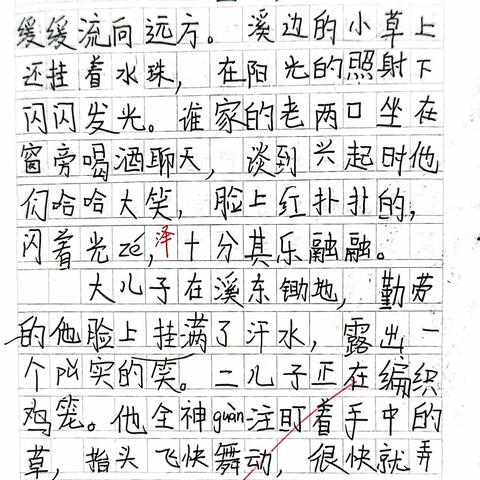 缓缓流向远方。溪边的小草上
还挂着水珠，在阳光的照射下
闪闪发光。谁家的老两口坐在
窗旁喝酒聊天，谈到兴起时他
们哈哈大笑，脸上红扑扑的，
闪着光zé，泽十分其乐融融。
大儿子在溪东锄地，勤劳
的他脸上挂满了汗水，露出一
个 实的笑。二儿子正在编织
鸡笼。他全神guàn注盯着手中的
草，指头飞快舞动，很快就弄